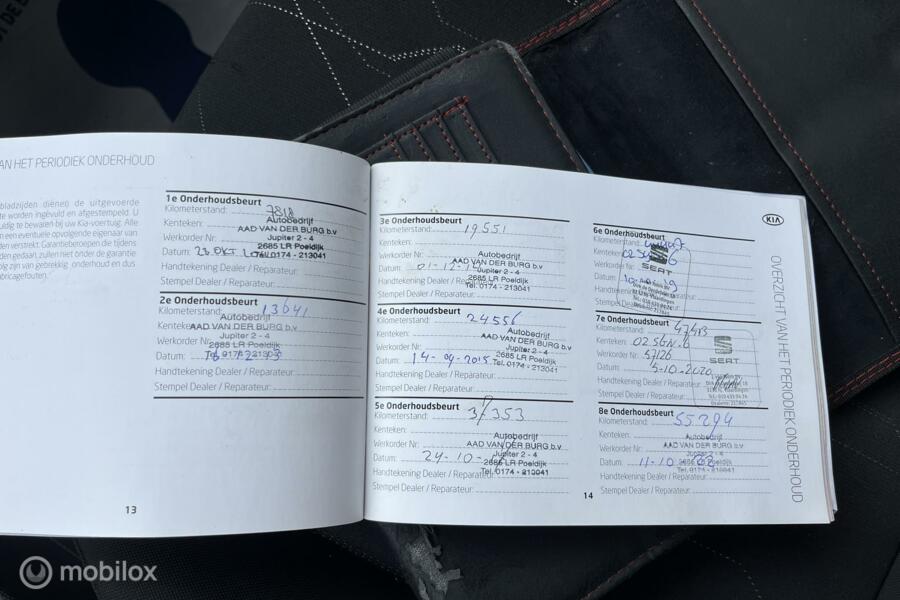 AN HET PERIODIEK ONDERHOUD
bladzijden (dienen) de uitgevoerde
te worden ingevuld en afgestempeld. U
uldig te bewaren bij uw Kia-voertuig. Alle
n een eventuele opvolgende eigenaar van
den verstrekt. Garantieberoepen die tijdens
den gedaan, zullen niet onder de garantie
olg zijn van gebrekkig onderhoud en dus
abricagefouten).
1e Onderhoudsbeurt
Kilometerstand: 7818
Kenteken:
Autobedrijf
AAD VAN DER BURG b.v
Werkorder Nr:
Jupiter 2 - 4
2685 LR Poeldijk
Datum: 28 OKT
Tel. 0174 - 213041
Handtekening Dealer / Reparateur:
Stempel Dealer / Reparateur:
2e Onderhoudsbeurt
Kilometerstand: 13641
Autobedrijf
Kenteken:
AAD VAN DER BURG b.v
Werkorder
Jupiter 2 - 4
2685 LR Poeldijk
Datum:
Handtekening Dealer / Reparateur:
Stempel Dealer / Reparateur:
13
3e Onderhoudsbeurt
Kilometerstand: 19551
Kenteken:
Autobedrijf
AAD VAN DER BURG b.v
Werkorder Nr:
Jupiter 2 - 4
Datum: 01-12-
2685 LR Poeldijk
Tel. 0174 - 213041
Handtekening Dealer / Reparateur:
Stempel Dealer / Reparateur:
4e Onderhoudsbeurt
Kilometerstand: 24556
Kenteken:
Autobedrijf
AAD VAN DER BURG b.v
Werkorder Nr:
Jupiter 2 - 4
2685 LR Poeldijk
Datum: 14-09-2015
Tel. 0174 - 213041
Handtekening Dealer / Reparateur:
Stempel Dealer / Reparateur:
5e Onderhoudsbeurt
Kilometerstand: 31353
Kenteken:
Autobedrijf
AAD VAN DER BURG b.v
Werkorder Nr:
Jupiter 2 - 4
Datum: 24-10-
2685 LR Poeldijk
Tel. 0174 - 213041
Handtekening Dealer / Reparateur:
Stempel Dealer / Reparateur:
14
KIA
OVERZICHT VAN HET PERIODIEK ONDERHOUD
6e Onderhoudsbeurt
SEAT
7e Onderhoudsbeurt
Kilometerstand: 47413
Kenteken:
Werkorder Nr: 57126
SEAT
Datum: 5-10-2020
Handtekening Dealer / Reparateur:
Stempel Dealer / Reparateur:
8e Onderhoudsbeurt
Kilometerstand: 55294
Kenteken:
Autobedrijf
AAD VAN DER BURG b.v
Werkorder Nr:
Jupiter 2 - 4
Datum: 11-10
2685 LR Poeldijk
Tel. 0174 - 213041
Handtekening Dealer / Reparateur:
Stempel Dealer / Reparateur:
mobilox